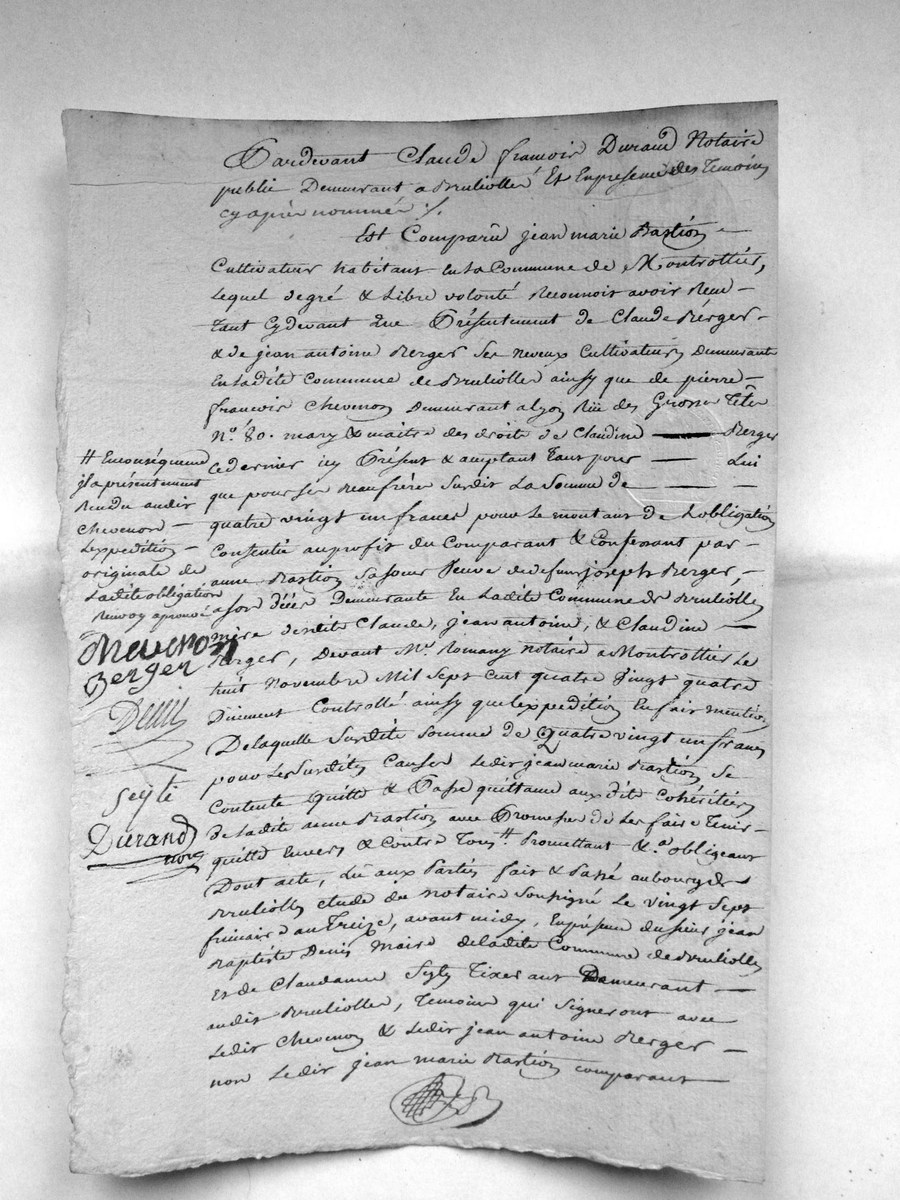 Pardevant Claude françois Durand Notaire
public Demeurant a Brulliolle Et En presence des Temoins
cy après nommés ./.
Est Comparû jean marie Bastion
Cultivateur habitant En La Commune de Montrottier,
Lequel de gré & Libre volonté Reconnois avoir Reçu
Tant Cydevant que Présentement de Claude Berger
& de jean antoine Berger Ses neveux Cultivateurs Demeurants
En Ladite Commune de Brullioles ainsy que de pierre
françois Chevenon Demeurant a Lyon Rüe des Grosse Tête
N.º 80. mary & maitre des droits de Claudine Berger
Ce dernier icy Présent & acceptant Tant pour Lui
que pour ses Beaufrères Susdit La Somme de
quatre vingt un francs pour Le montant de Lobligation
Consentie au profit du Comparant & Confessant par
anne Bastion Sa soeur Veuve de defunt joseph Berger,
a son décès Demeurante En Ladite Commune de Brullioles
mère desdits Claude, jean antoine, & Claudine
Berger, Devant Me. Romany notaire a Montrottier Le
huit Novembre Mil Sept Cent quatre Vingt quatre
Düement Controllé ainsy que Lexpedition En fait mention
De laquelle Susdite Somme de Quatre vingt un francs
pour Les Susdites Causes Ledit jean marie Bastion Se
Contente quitte & Passe quittance aux dits Cohéritiers
de Ladite anne Bastion avec Promesse de Les faire Tenir
quitte Envers & Contre Tous # Promettant &.ª obligeant
Dont acte, Lû aux Parties fait & Passé au bourg de
Brullioles etude du notaire Soussigné Le Vingt Sept
frimaire an Treize, avant midy, En présence du sieur jean
Baptiste Denis Maire de Ladite Commune de Brullioles
Et de Claudanne Seyty Tixerant Demeurant
audit Brullioles, Temoins qui Signeront avec
Ledit Chevenon & Ledit jean antoine Berger
non Ledit jean marie Bastion comparant
# En conséquence
il a présentement
Rendu audit
Chevenon
Lexpedition
originale de
Ladite obligation
Renvoy aprouvé
Chevenon
Berger
Denis
Seyte
Durand
nore